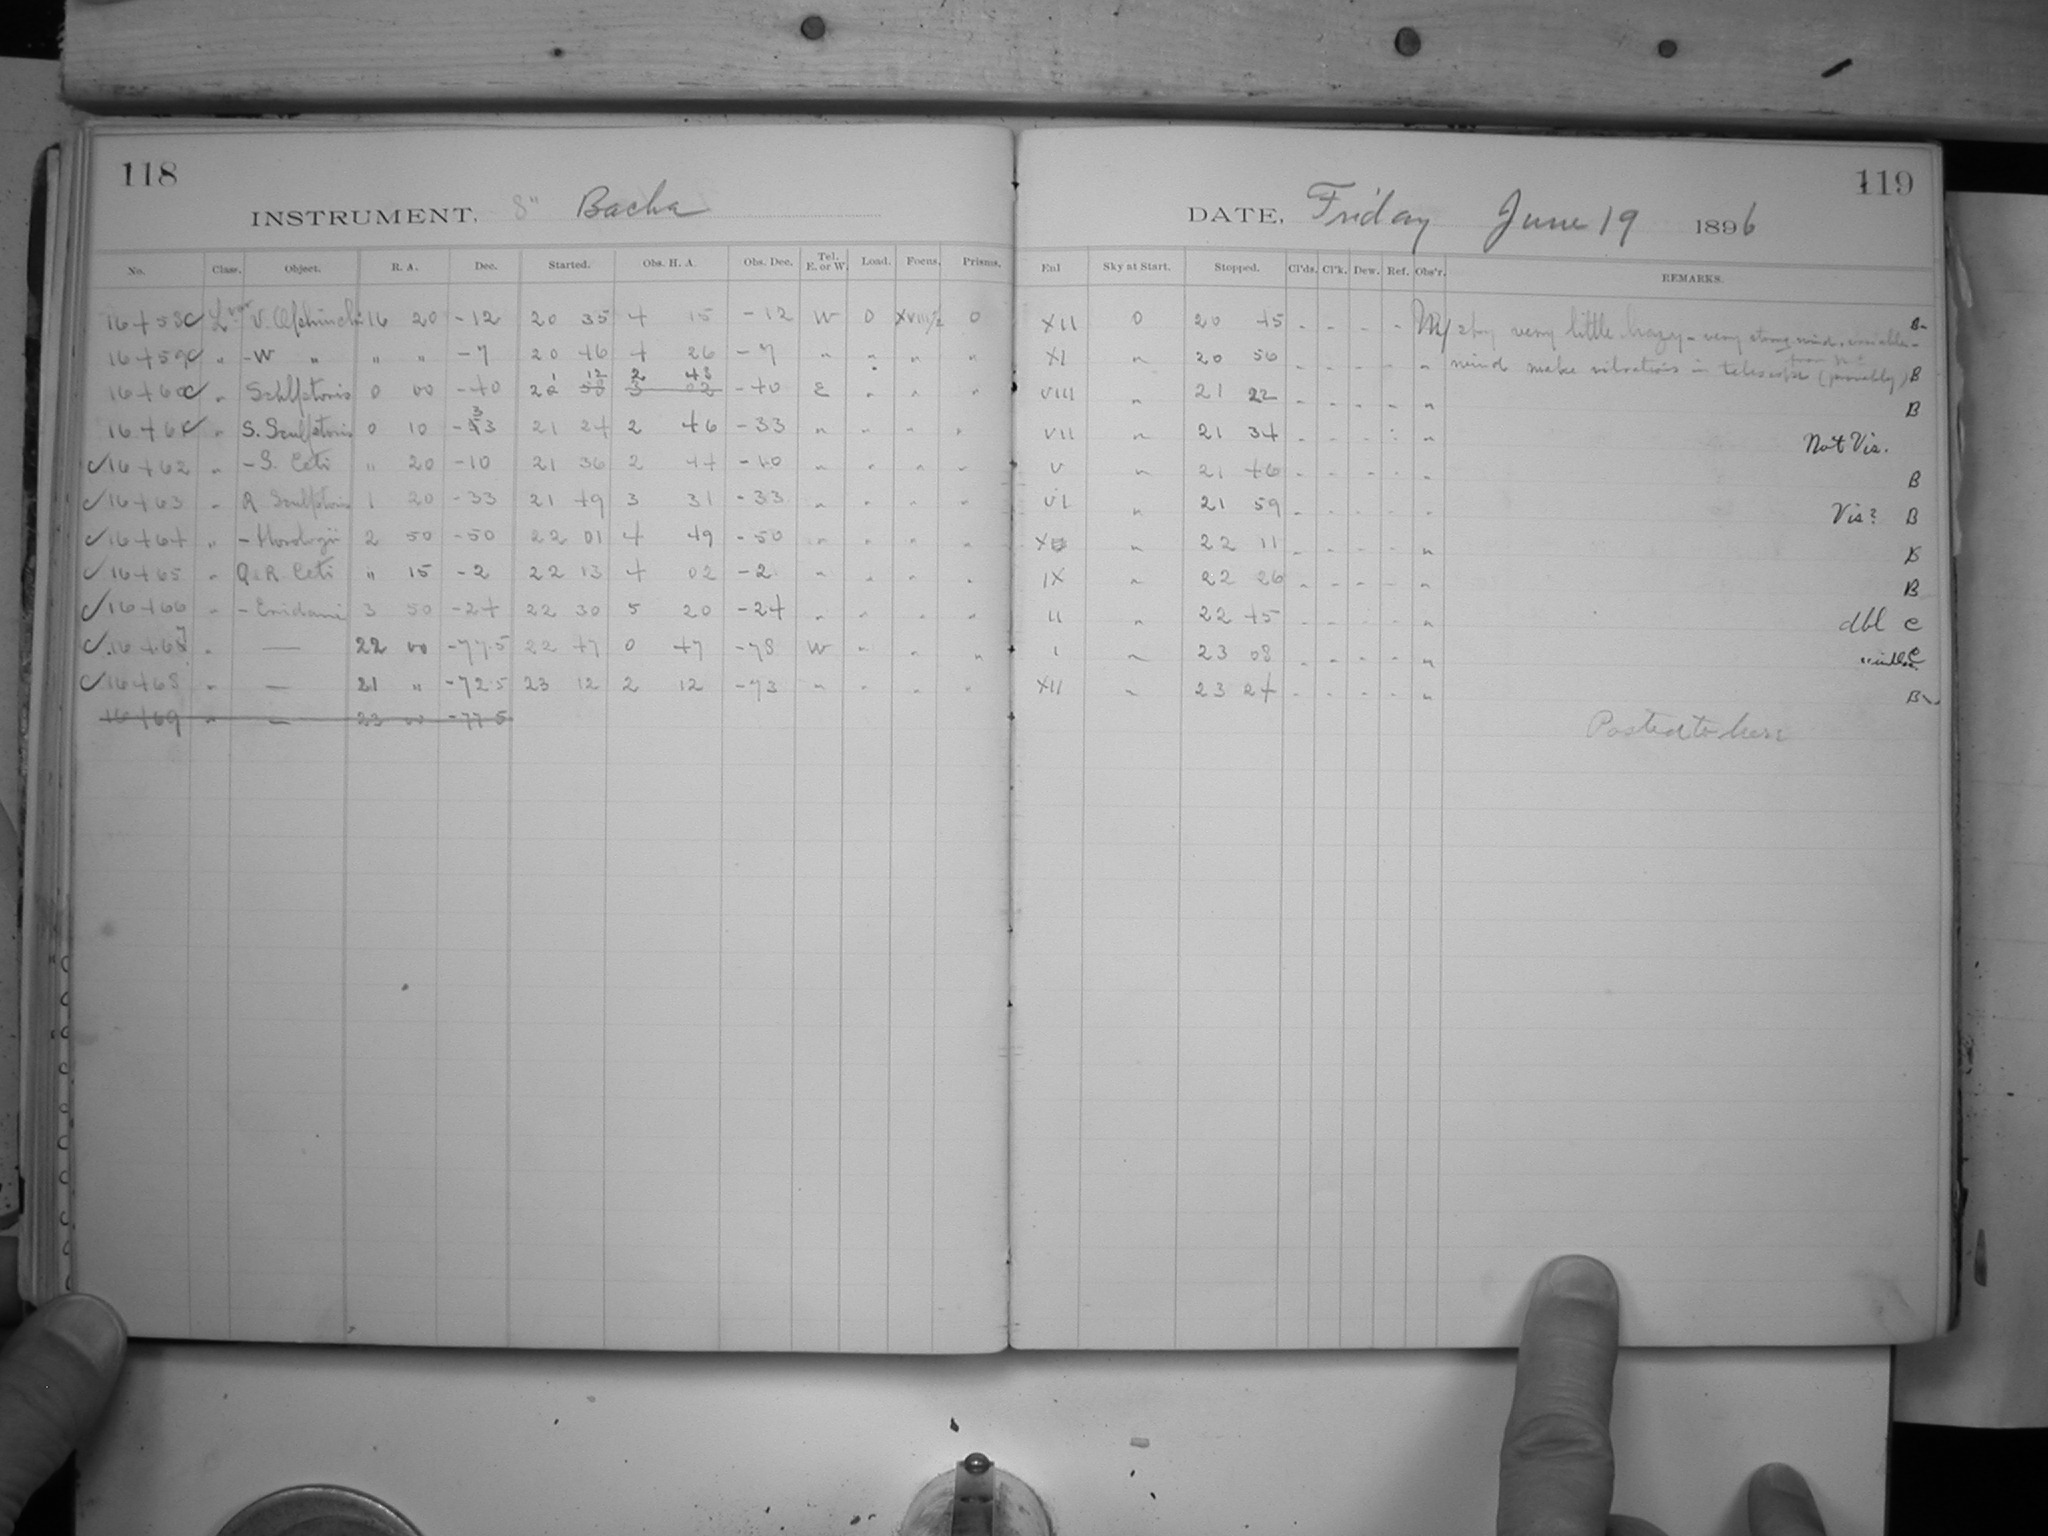 118
INSTRUMENT. 8" Bache
No. Class. Object. R. A. Dec. Started. Obs. H. A. Obs. Dec. Tel. E. or W. Load. Focus. Prisms.
16458 L V. Ophiuchi 16 20 -12 20 35 4 15 -12 W 0 XVIII½ 0
16459 " -W " " " -7 20 46 4 26 -7 " " " "
1 12 2 48
16460 " Sculptoris 0 00 -40 20 58 3 02 -40 E " " "
16461 " S. Sculptoris 0 10 -33 21 24 2 46 -33 " " " "
16462 " -S. Ceti " 20 -10 21 36 2 44 -10 " " " "
16463 " R Sculptoris 1 20 -33 21 49 3 31 -33 " " " "
16464 " -Horologii 2 50 -50 22 01 4 49 -50 " " " "
16465 " R. Ceti " 15 -2 22 13 4 02 -2 " " " "
16466 " -Eridani 3 50 -24 22 30 5 20 -24 " " " "
16467 " — 22 00 -77.5 22 47 0 47 -78 W " " "
16468 " — 21 " -72.5 23 12 2 12 -73 " " " "
16469 " — 23 00 -77.5
119
DATE. Friday June 19 1896
Enl Sky at Start. Stopped. Cl'ds. Cl'k. Dew. Ref. Obs'r. REMARKS.
XII 0 20 45 - - - - sky very little hazy - very strong wind, B-
XI " 20 56 - - - - " wind make vibrations in telescope (probably) B
VIII " 21 22 - - - - " B
VII " 21 34 - - - - " Not Vis.
V " 21 46 - - - - " B
VI " 21 59 - - - - " Vis? B
" 22 11 - - - - " B
IX " 22 26 - - - - " B
II " 22 45 - - - - " dbl C
I " 23 08 - - - - " C
XII " 23 24 - - - - " B-
Posted to here